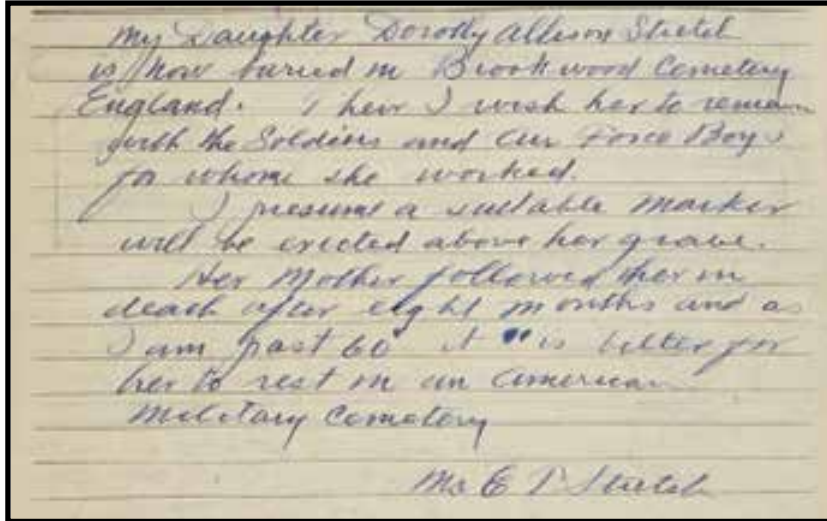 My Daughter Dorothy Allison Stretch
is now buried in Brookwood Cemetery
England. I hear I wish her to remain
with the Soldiers and Air Force Boys
for whom she worked.
I presume a suitable marker
will be erected above her grave.
Her Mother followed her in
death after eight months and as
I am past 60 it is better for
her to rest in an American
Military Cemetery
E Stretch